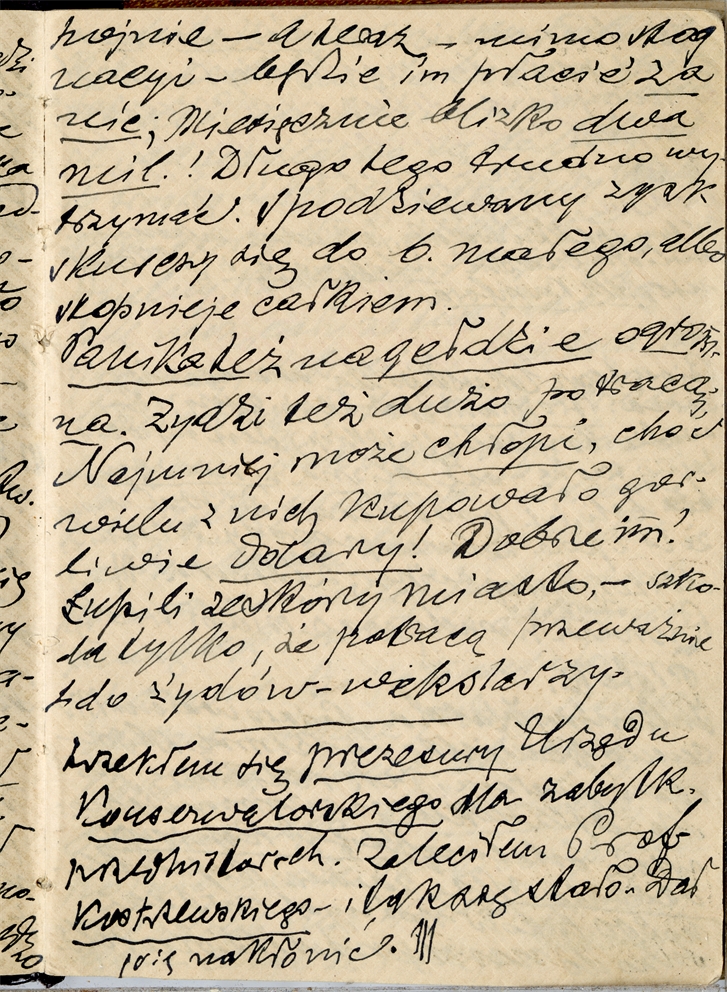 hojnie – a teraz – mimo stag
nacyi – będzie im płacić za
nic; Miesięcznie blizko dwa
mil.! Długo tego trudno wy
trzymać. Spodziewany zysk
skurczy się do b. małego, albo
stopnieje całkiem.
Panika też na giełdzie ogrom-
na. Żydzi też dużo potracą,
Najmniej może chłopi, choć
wielu z nich kupowało gor-
liwie dolary! Dobrze im!
Łupili ze skóry miasto, – szko-
da tylko, że potracą przeważnie
do żydów-wekslarzy.
Zrzekłem się prezesury Urzędu
Konserwatorskiego dla zabytk.
przedhistorch. Zaleciłem Prof
Kostrzewskiego – i tak się stało. Dał
się nakłonić.